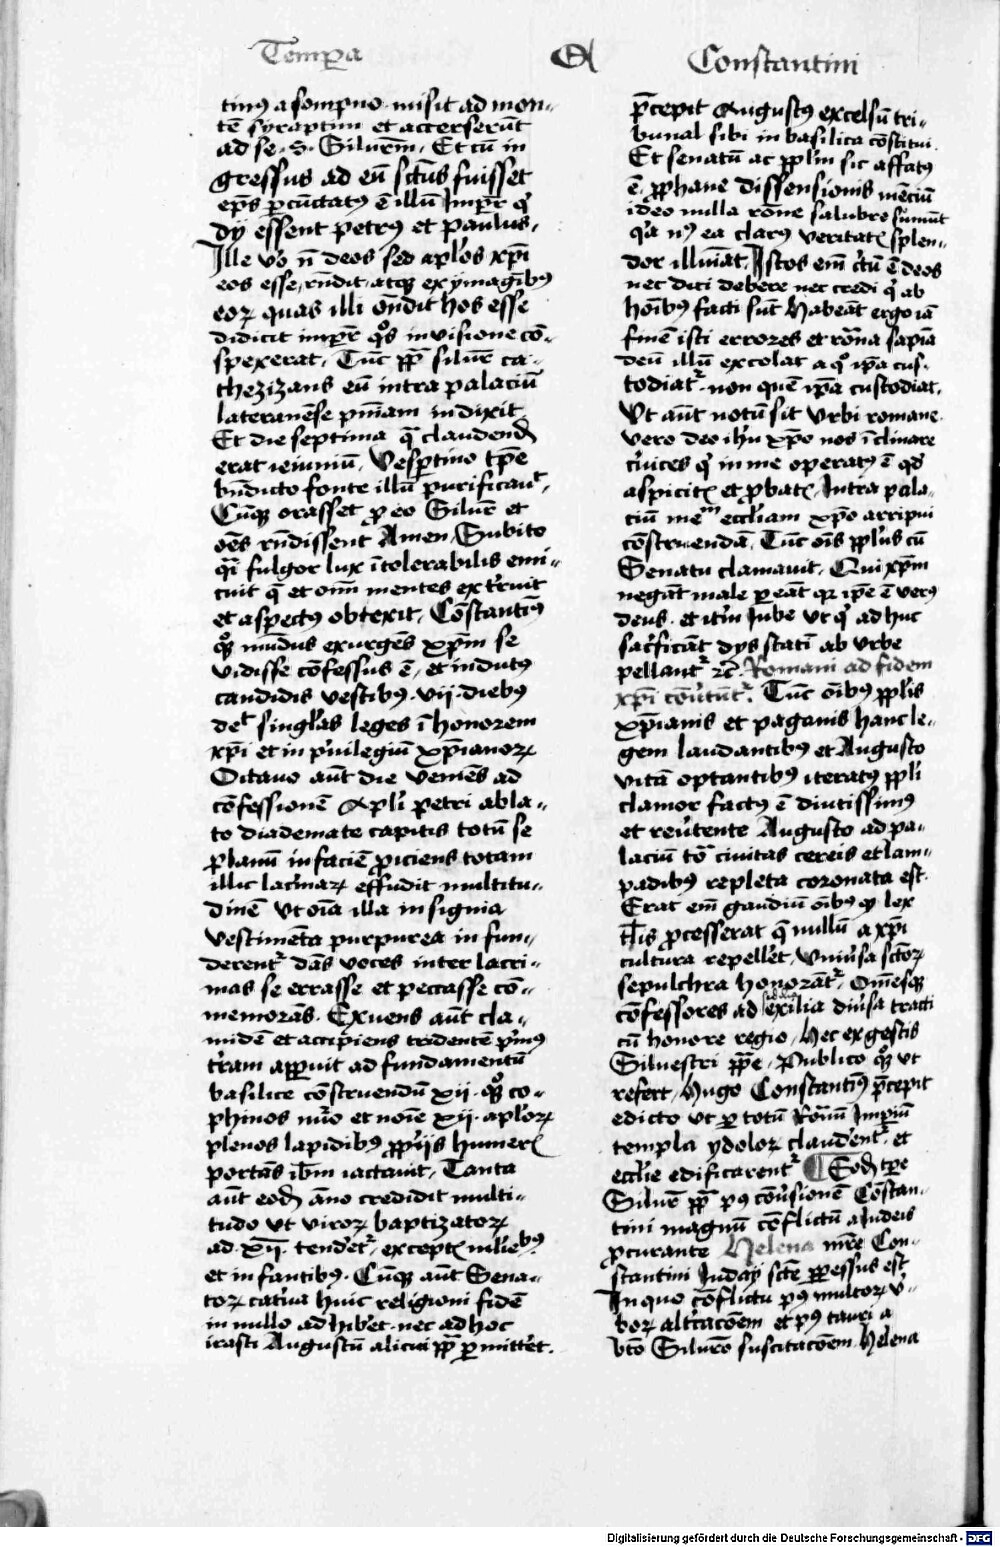 Temp̄a
Constantini
tinꝰ a sompno misit ad mon-
tē syraptim et accerserūt
ad se .S. Siluerm̄. Et cū in
gressus ad eū sctūs fuisset
ep̄s ꝑcūctatꝰ ē illū Imper̄ qͥ
dy essent petrꝰ et paulus.
Ille vͦo n̄ deos sed ap̄los xp̄i
eos esse rn̄dit. atqꝫ ex ymagībꝰ
eoꝝ quas illi on̄dit hos esse
didicit imper̄ qͦs in visione cō-
spexerat. Tūc pp̄ siluer̄ ca-
thezizans eū intra palaciū
lateranēse pniam̄ indixit
Et die septima q̄ claudend̄
erat ieiuniū. Vesꝑtino tp̄e
bn̄dicto fonte illū purificauͭ.
Cūqꝫ orasset ꝓ eo Siluer̄ et
oēs rn̄dissent Amen. Subito
qͣi fulgor lux ītolerabilis emi-
cuit q̄ et om̄ mentes exterruit
et aspectꝰ obtexit. Cōstantīꝰ
qͦꝫ mūdus exurgēs xp̄m se
vidisse cōfessus ē. et indutꝰ
candidis vestibꝰ .vii. diebꝰ
det singlas leges ī honorem
xp̄i et in priuilegiū xp̄ianoꝝ
Octauo aūt die veniēs ad
cōfessionē Apl̄i petri abla-
to diademate capitis totū se
ꝑ planū in faciē ꝓiciens totam
illic lacrimaꝝ effudit multitu-
dinē vt oīa illa insignia
vestimēta purpurea infun-
derentͬ dās voces inter lacri-
mas se errasse et peccasse cō-
memorās. Exuens aūt cla-
midē et accipiens tridentē pͥmꝰ
terram apperuit ad fundamentū
basilice cōstruendū xij. qͦꝫ co-
phinos nūo et noīe xij. aploꝝ
plenos lapidibꝰ ppriis humeris
portās ibm̄ iactauit. Tanta
aūt eod̄ āno credidit multi-
tudo vt viroꝝ baptizatoꝝ
ad .xij. tenderetͬ. exceptis mulieꝛibꝰ
et infantibꝰ. Cūqꝫ aūt Sena-
toꝝ caterua huic religioni fidē
in nullo adhiberet. nec ad hoc
irasti Augustū alicui pp̄ ꝑmitteret.
p̄cepit Augustꝰ excelsū tri-
bunal sibi in basilica cōstitui.
Et senatū ac ppl̄m sic affatꝰ
ē. ꝓphane dissensionis mēciū
ideo nulla rōne salubre sumūt
qͣ nꝰ ea clarꝰ veritatis splen-
dor illuīat. Istos em̄ cͭū ē deos
nec dici debere nec credi qͥ ab
hoībꝰ facti sūt. Habeāt ergo iā
finē isti errores et rōna sapīa
deū illū excolat a qͦ ip̄a cus-
todiatͬ. non quē ip̄a custodiat.
Vt aūt notū sit vrbi romane
vero deo ihū xp̄o nos īclinare
ceruices qͥ in me operatꝰ ē qd̄
aspicitis et ꝓbatis. Intra pala-
ciū meᵐ eccl̄iam xp̄o arripui
cōstruendā. Tūc oīs ppl̄us cū
Senatu clamauit. Qui xp̄m
negāt male ꝑeāt qꝛ ip̄e ē verꝰ
deus. et itm̄ Iube vt qͥ adhuc
sacrificāt dys statī ab vrbe
pellantͬ ꝛc̄. Romani ad fidem
xp̄i cōuertūtͬ. Tūc oībus ppl̄is
xp̄ianis et paganis hanc le-
gem laudantibꝰ et Augusto
vitā optantibꝰ iteratꝰ ppl̄i
clamor factꝰ ē diutissimꝰ
et reuertente Augusto ad pa-
laciū tōͣ ciuitas cereis et lam-
padibꝰ repleta coronata est.
Erat em̄ gaudiū oībꝰ qꝫ lex
tͣlis ꝓcesserat q̄ nullū a xp̄i
cultura repelleret. Vniuersa sctōꝝ
sepulchra honorātͬ. Omēsqꝫ
cōfessores ad exilia diuersa tracti
cū honore regio. Hec ex gestis
Siluestri pp̄e. Publico qͦꝫ vt
refert Hugo Constantīꝰ p̄cepit
edicto vt ꝑ totū Romū Impiū
templa ydoloꝝ clauderentͬ et
eccl̄ie edificarentͬ ¶ Eod̄ tp̄e
Siluer̄ pp̄ pꝰ cōuersionē Cōstan-
tini magnū cōflictū a Iudeis
ꝓcurante Helena mr̄e Con-
stantini Iudaÿ sctē pp̄essus est
In quo cōflictu pꝰ multoꝝ v̓-
boꝝ altͬcacōem et pꝰ tauri a
bto Siluero suscitacōem. Helena